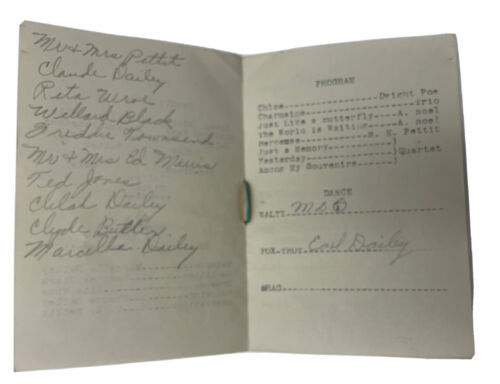 Mr & Mrs Pettit
Claude Dailey
Reta Wroe
Willard Black
Freddie Townsend
Mr & Mrs Ed Marris
Ted Jones
Celah Dailey
Clyde Butler
Marcella Dailey
PROGRAM
Chloe Dwight Poe
Charmaine Trio
Just Like a Butterfly A. Noel
The World is Waiting A. Noel
Berceuse H. E. Pettit
Just a Memory )
Yesterday )Quartet
Among My Souvenirs )
DANCE
WALTZ
FOX-TROT Earl Dailey
DRAG